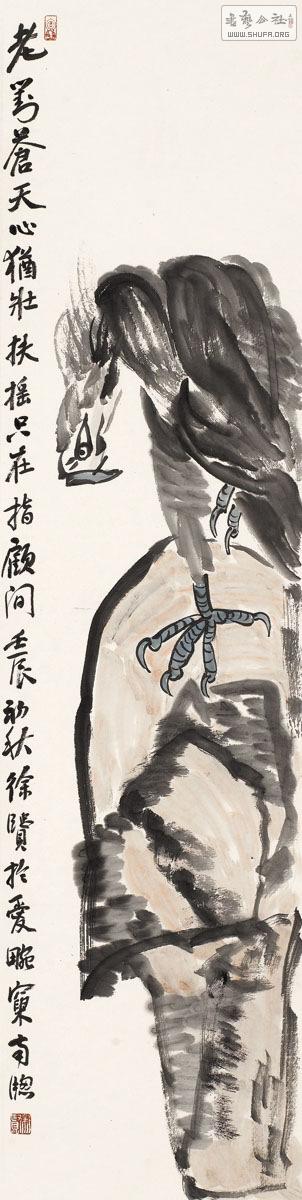 老對蒼天心猶壯扶搖只在指顧间壬辰初秋徐賢於愛晼窠南牕
书艺公社
WWW.SHUFA.ORG